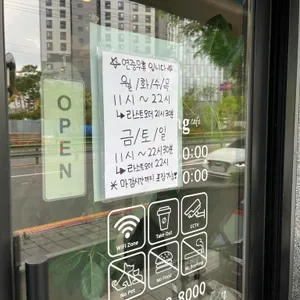 ☆연중무휴 입니다☆
월/화/수/목
11시 ~ 22시
↳라스트오더 21시 30분
금/토/일
11시 ~ 22시 30분
↳라스트오더 22시
※ 마감시간까지 포장가능♡
OPEN
ng
cafe
0:00
0:00
WiFi Zone
Take Out
CCTV
No Pet
No Food
No Smoking
8000